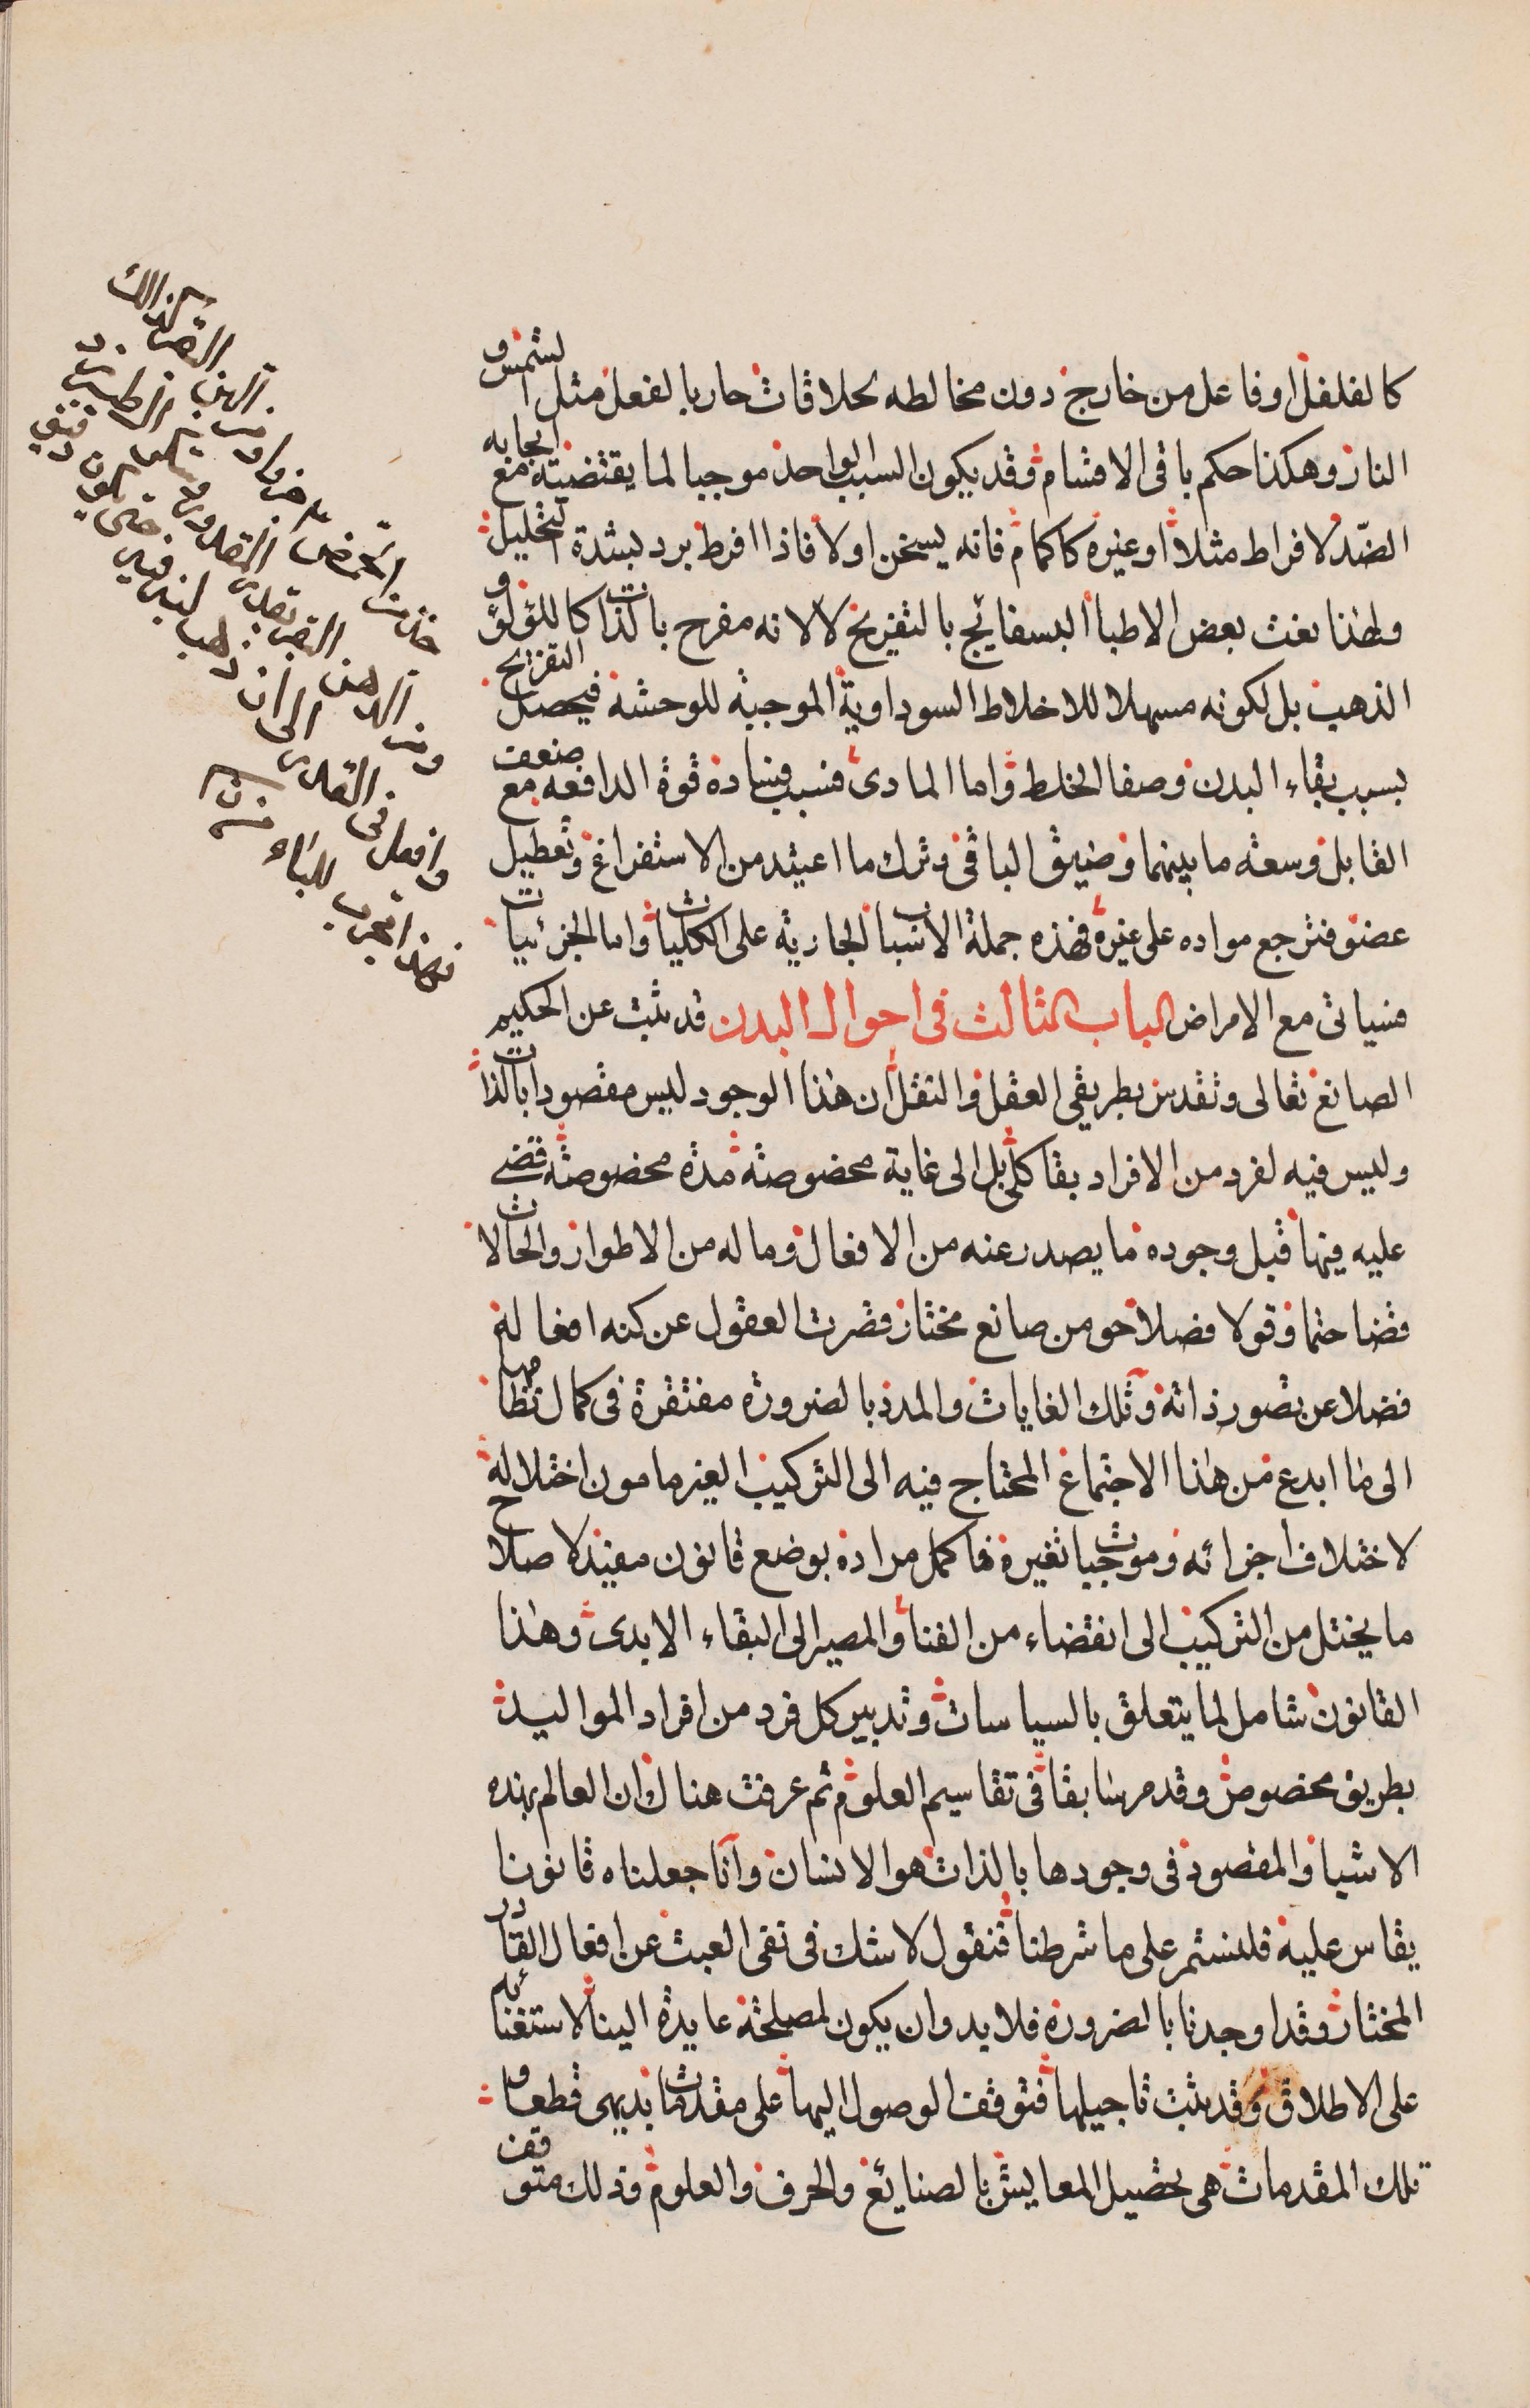 كالفلفل او فاعل من خارج دون مخالطه كملاقات حار بالفعل مثل الشمس و
النار وهكذا حكم باقى الاقسام وقد يكون السبب الواحد موجبا لما يقتضيه ايجابه مع
الضد لافراط مثلا او غيره كالحمام فانه يسخن اولا فاذا افرط برد لشدة التحليل
ولهذا نعت بعض الاطبا البسفايج بالتفريح لا لانه مفرح بالذات كاللؤلؤ و
الذهب بل لكونه مسهلا للاخلاط السوداوية الموجبة للوحشة فيحصل التفريح
بسبب نقاء البدن وصفا الخلط واما المادى فسبب فساده قوة الدافعه مع ضعف
القابل وسعة ما بينهما وضيق الباقى وترك ما اعيتد من الاستفراغ وتعطيل
عضو فترجع مواده على غيره فهذه جملة الاسباب الجارية على الكليات واما الجزئيات
فسياتى مع الامراض الباب الثالث فى احوال البدن قد ثبت عن الحكيم
الصانع تعالى وتقدس بطريقى العقل والنقل ان هذا الوجود ليس مقصودا بالذات
وليس فيه لفرد من الافراد بقا كلى بل الى غاية مخصوصة مدة مخصوصة قضى
عليه فيها قبل وجوده ما يصدر عنه من الافعال وما له من الاطوار والحالات
قضا حتما وقولا فصلا حو من صانع مختار قصرت العقول عن كنه افعاله
فضلا عن تصور ذاته وتلك الغايات والمدد بالضرورة مفتقرة فى كمال نظامها
الى ما ابدع من هذا الاجتماع المحتاج فيه الى التركيب الغير مامون اختلاله
لاختلاف اجزائه وموجبات تغيره فاكمل مراده بوضع قانون مفيد لاصلاح
ما يختل من التركيب الى انقضاء من الفنا والمصير الى البقاء الابدى وهذا
القانون شامل لما يتعلق بالسياسات وتدبير كل فرد من افراد المواليد
بطريق مخصوص وقد مر سابقا فى تقاسيم العلوم ثم عرفت هناك ان العالم بهذه
الاشيا والمقصود فى وجودها بالذات هو الانسان وانا جعلناه قانونا
يقاس عليه فلنستمر على ما شرطنا فنقول لا شك فى نفى العبث عن افعال القادر
المختار وقد اوجدنا بالضرورة فلابد وان يكون لمصلحة عايدة الينا لاستغنائه
على الاطلاق وقد ثبت تاجيلها فتوقف الوصول اليها على مقدمات بديهى قطعا و
تلك المقدمات هى تحصيل المعايش بالصنايع والحرف والعلوم وذلك متوقف